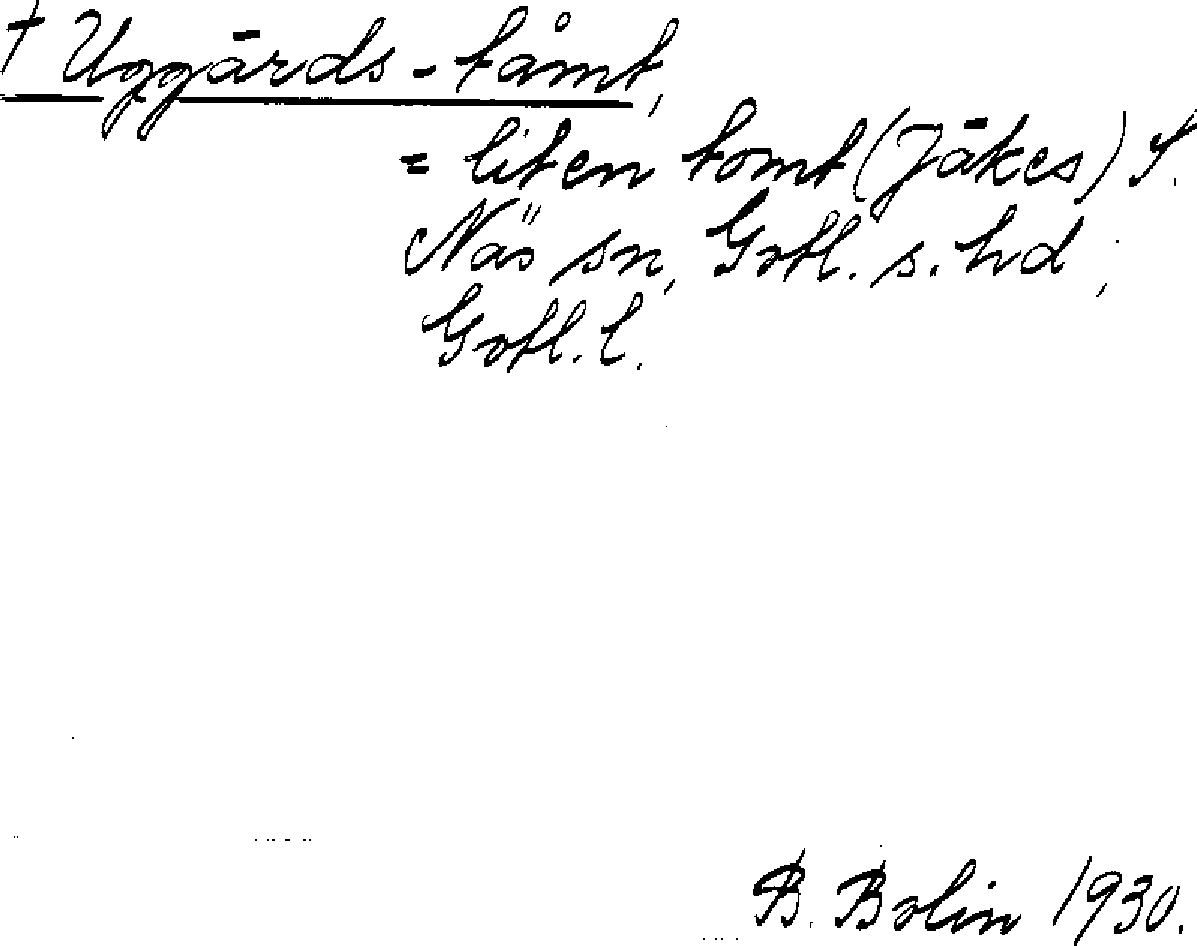 † Uggārds-tåmt,
= liten tomt (Jākes) S.
Näs sn, Gotl. s. hd,
Gotl. l.
B. Bolin 1930.